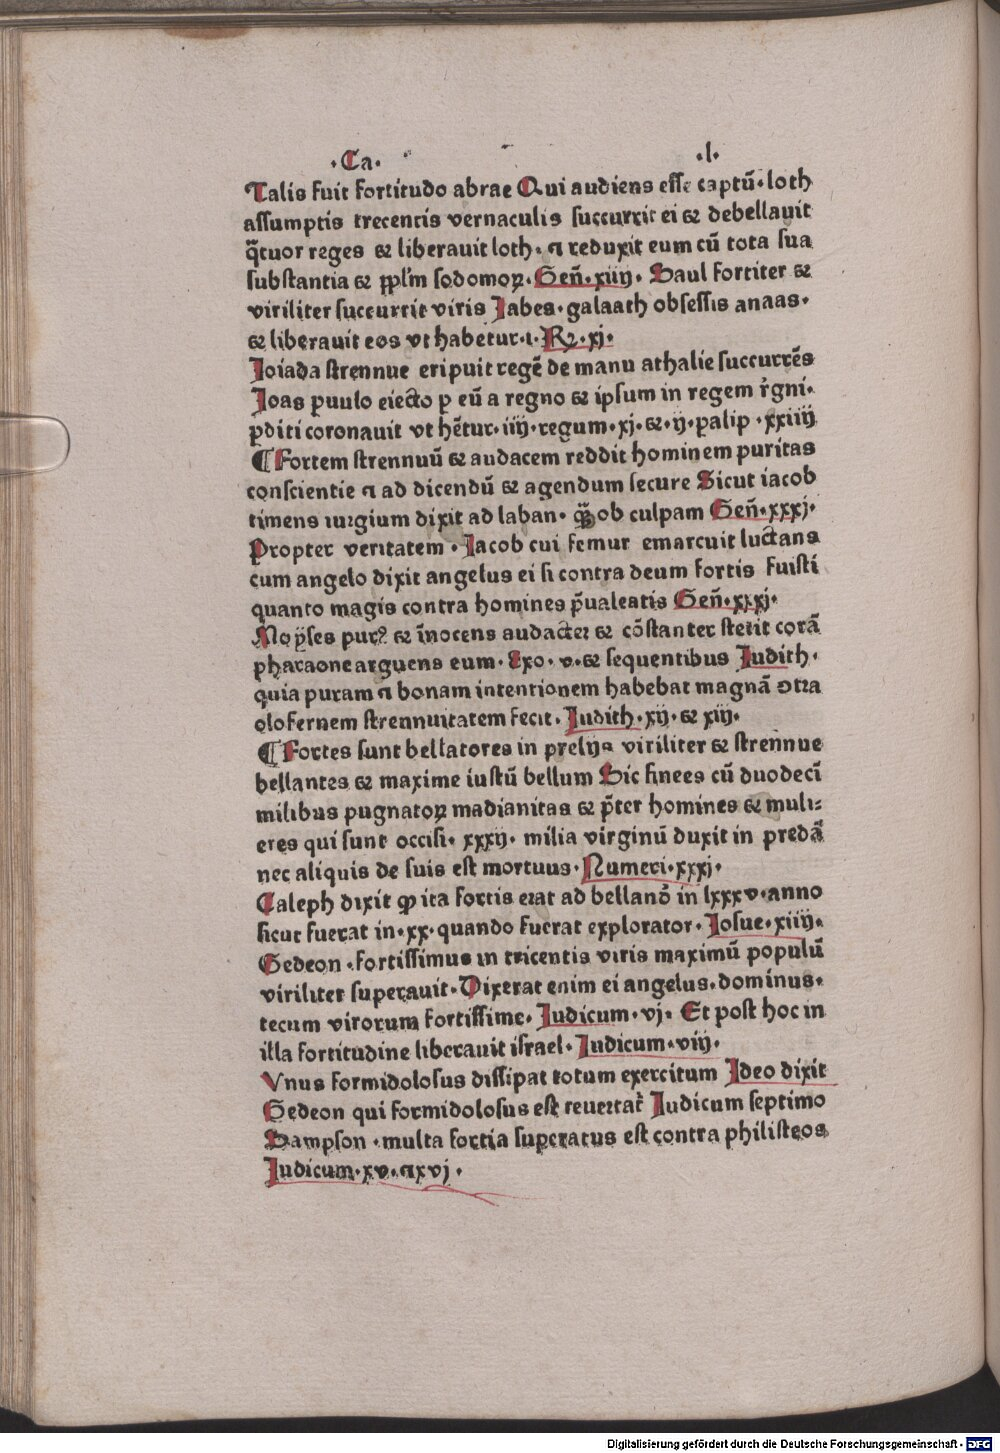 ·Ca· ·l·
Talis fuit fortitudo abrae Qui audiens esse captū·loth
assumptis trecentis vernaculis succurrit ei & debellauit
q̄tuor reges & liberauit loth· ⁊ reduxit eum cū tota sua
substantia & pplm̄ sodomoꝝ·Geñ·xiiij· Saul fortiter &
viriliter succurrit viris Jabes·galaath obsessis anaas·
& liberauit eos vt habetur·1·Rꝫ·xj·
Joiada strennue eripuit regē de manu athalie succurrēs
Joas puulo eiecto p eū a regno & ipsum in regem r̄gni·
pditi coronauit vt hētur·iiij·regum·xj·&·ij·palip·xxiiij
¶Fortem strennuū & audacem reddit hominem puritas
conscientie ⁊ ad dicendū & agendum secure Sicut iacob
timens iurgium dixit ad laban· quā ob culpam Geñ·xxxj·
Propter veritatem·Jacob cui femur emarcuit luctans
cum angelo dixit angelus ei si contra deum fortis fuisti
quanto magis contra homines p̄ualeatis Geñ·xxxj·
Moyses purꝰ & īnocens audacter & cōstanter stetit corā
pharaone arguens eum·Exo·v·& sequentibus Judith·
quia puram ⁊ bonam intentionem habebat magnā ↄtra
olofernem strennuitatem fecit·Judith·xij·& xiij·
¶Fortes sunt bellatores in prelijs viriliter & strennue
bellantes & maxime iustū bellum Sic finees cū duodecī
milibus pugnatoꝝ madianitas & p̄ter homines & muli⸗
eres qui sunt occisi·xxxij·milia virginū duxit in predā
nec aliquis de suis est mortuus·Numeri·xxxj·
Caleph dixit ꝙ ita fortis erat ad bellanō in lxxxv·anno
sicut fuerat in·xx·quando fuerat explorator·Josue·xiiij·
Gedeon·fortissimus in tricentis viris maximū populū
viriliter superauit·Dixerat enim ei angelus·dominus·
tecum virorum fortissime·Judicum·vj·Et post hoc in
illa fortitudine liberauit israel·Judicum·viij·
Vnus formidolosus dissipat totum exercitum Ideo dixit
Gedeon qui formidolosus est reuertat̄ Judicum septimo
Sampson·multa fortia superatus est contra philisteos
Judicum·xv·⁊xvj·
Digitalisierung gefördert durch die Deutsche Forschungsgemeinschaft - DFG